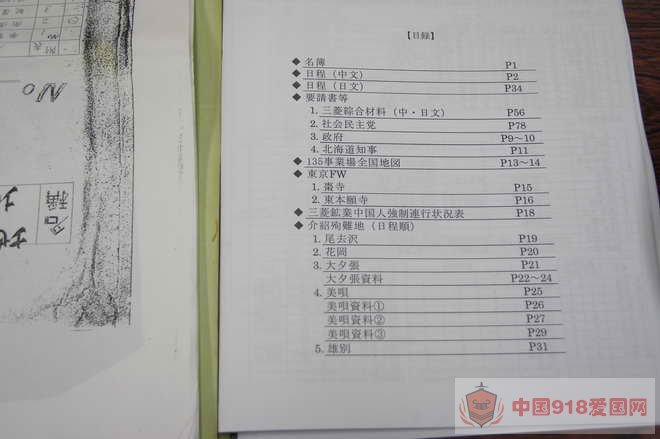 【目録】
◆ 名簿 P1
◆ 日程（中文） P2
◆ 日程（日文） P34
◆ 要請書等
1. 三菱綜合材料（中・日文） P56
2. 社会民主党 P78
3. 政府 P9～10
4. 北海道知事 P11
◆ 135事業場全国地図 P13～14
◆ 東京FW
1. 棗寺 P15
2. 東本願寺 P16
◆ 三菱鉱業中国人強制連行状況表 P18
◆ 介紹殉難地（日程順）
1. 尾去沢 P19
2. 花岡 P20
3. 大夕張 P21
大夕張資料 P22～24
4. 美唄 P25
美唄資料① P26
美唄資料② P27
美唄資料③ P29
5. 雄別 P31
No
名稱
中国918爱国网